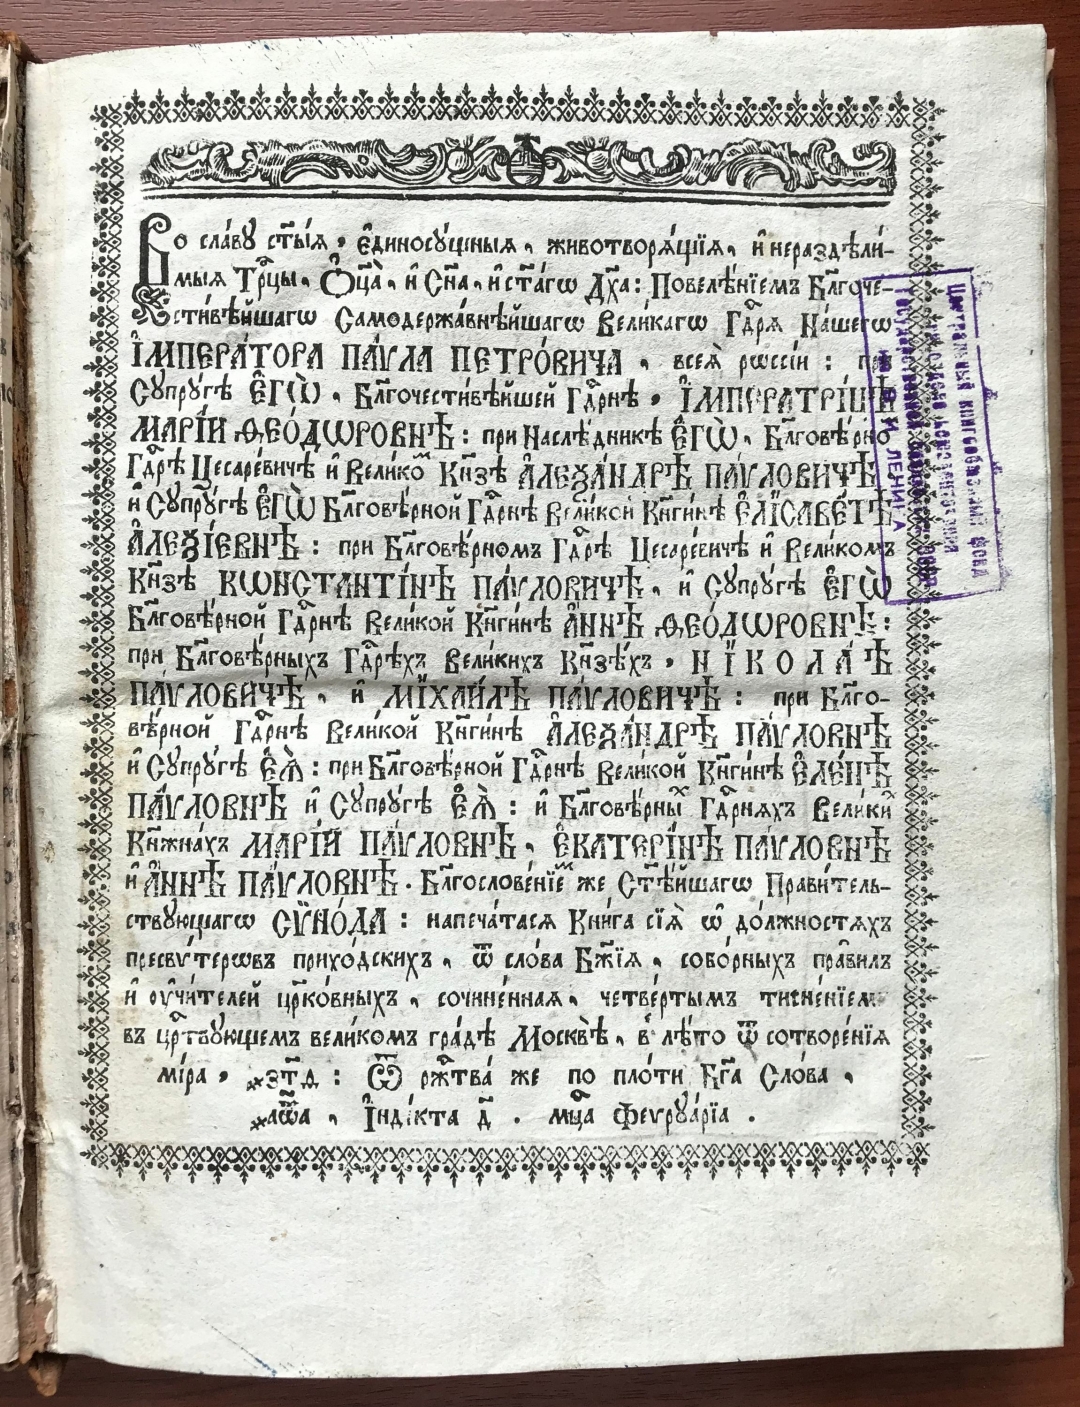 Во сла́вꙋ ст҃ы́ѧ, є҆диносꙋ́щныѧ, животворѧ́щїѧ, и҆ нераздѣли́-
мыѧ Трⷪ҇цы, Ѻ҆ц҃а̀, и҆ Сн҃а, и҆ ст҃а́гѡ Дх҃а: Повелѣ́нїемъ Бл҃гоче-
сти́вѣйшагѡ Самодержа́внѣйшагѡ Вели́кагѡ Гдⷭ҇рѧ На́шегѡ
І҆МПЕРА́ТОРА ПА́ѴЛА ПЕТРО́ВИЧА, всеѧ̀ рѡссі́и: при
Сꙋпрꙋ́гѣ Є҆ГѠ̀, Бл҃гочести́вѣйшей Гдⷭ҇рнѣ, І҆МПЕРАТРІ́ЦѢ
МАРІ́И ѲЕО́ДѠРОВНѢ: при Наслѣ́дникѣ Є҆ГѠ̀, Бл҃говѣ́рно
Гдⷭ҇рѣ Цесаре́вичѣ и҆ Вели́коⷨ Кн҃зѣ А҆ЛЕѮА́НДРѢ ПА́ѴЛОВИЧѢ
и҆ Сꙋпрꙋ́гѣ Є҆ГѠ̀ Бл҃говѣ́рной Гдⷭ҇рнѣ Вели́кой Кн҃ги́нѣ Є҆ЛІСАВЕ́ТѢ
А҆ЛЕѮІ́ЕВНѢ: при Бл҃говѣ́рномъ Гдⷭ҇рѣ Цесаре́вичѣ и҆ Вели́комъ
Кн҃зѣ КѠНСТАНТІ́НѢ ПА́ѴЛОВИЧѢ, и҆ Сꙋпрꙋ́гѣ Є҆ГѠ̀
Бл҃говѣ́рной Гдⷭ҇рнѣ Вели́кой Кн҃ги́нѣ А҆́ННѢ ѲЕО́ДѠРОВНѢ:
при Бл҃говѣ́рныхъ Гдⷭ҇рѣхъ Вели́кихъ Кн҃зѣ́хъ, НЇКОЛА́Ѣ
ПА́ѴЛОВИЧѢ, и҆ МЇХАИ́ЛѢ ПА́ѴЛОВИЧѢ: при Бл҃го-
вѣ́рной Гдⷭ҇рнѣ Вели́кой Кн҃ги́нѣ А҆ЛЕѮА́НДРѢ ПА́ѴЛОВНѢ
и҆ Сꙋпрꙋ́гѣ Є҆Ѧ̀: при Бл҃говѣ́рной Гдⷭ҇рнѣ Вели́кой Кн҃ги́нѣ Є҆ЛЕ́НѢ
ПА́ѴЛОВНѢ и҆ Сꙋпрꙋ́гѣ Є҆Ѧ̀: и҆ Бл҃говѣ́рныⷯ Гдⷭ҇рнѧхъ Вели́киⷯ
Кн҃жна́хъ МАРІ́И ПА́ѴЛОВНѢ, Є҆КАТЕРІ́НѢ ПА́ѴЛОВНѢ
и҆ А҆́ННѢ ПА́ѴЛОВНѢ. Бл҃гослове́нїеⷨ же Ст҃ѣ́йшагѡ Прави́тель-
ствꙋющагѡ СѴНО́ДА: напеча́тасѧ Кни́га сїѧ̀ ѡ҆ до́лжностѧхъ
пресвѵ́терѡвъ прихо́дскихъ, ѿ сло́ва Бж҃їѧ, собо́рныхъ пра́вилъ
и҆ ᲂу҆чи́телей цр҃ко́вныхъ, сочине́ннаѧ, четве́ртымъ тисне́нїемъ
въ црⷭ҇твꙋющемъ вели́комъ гра́дѣ Москвѣ̀, в̾ лѣ́то ѿ сотворе́нїѧ
мі́ра, ҂зт҃ѳ: Ѿ ржⷭ҇тва́ же по пло́ти Бг҃а Сло́ва,
҂аѿ҃а, І҆нді́кта д҃. мцⷭ҇а Феѵрꙋа́рїа.
Центральный книгообменный фонд
ЛЕНИНА